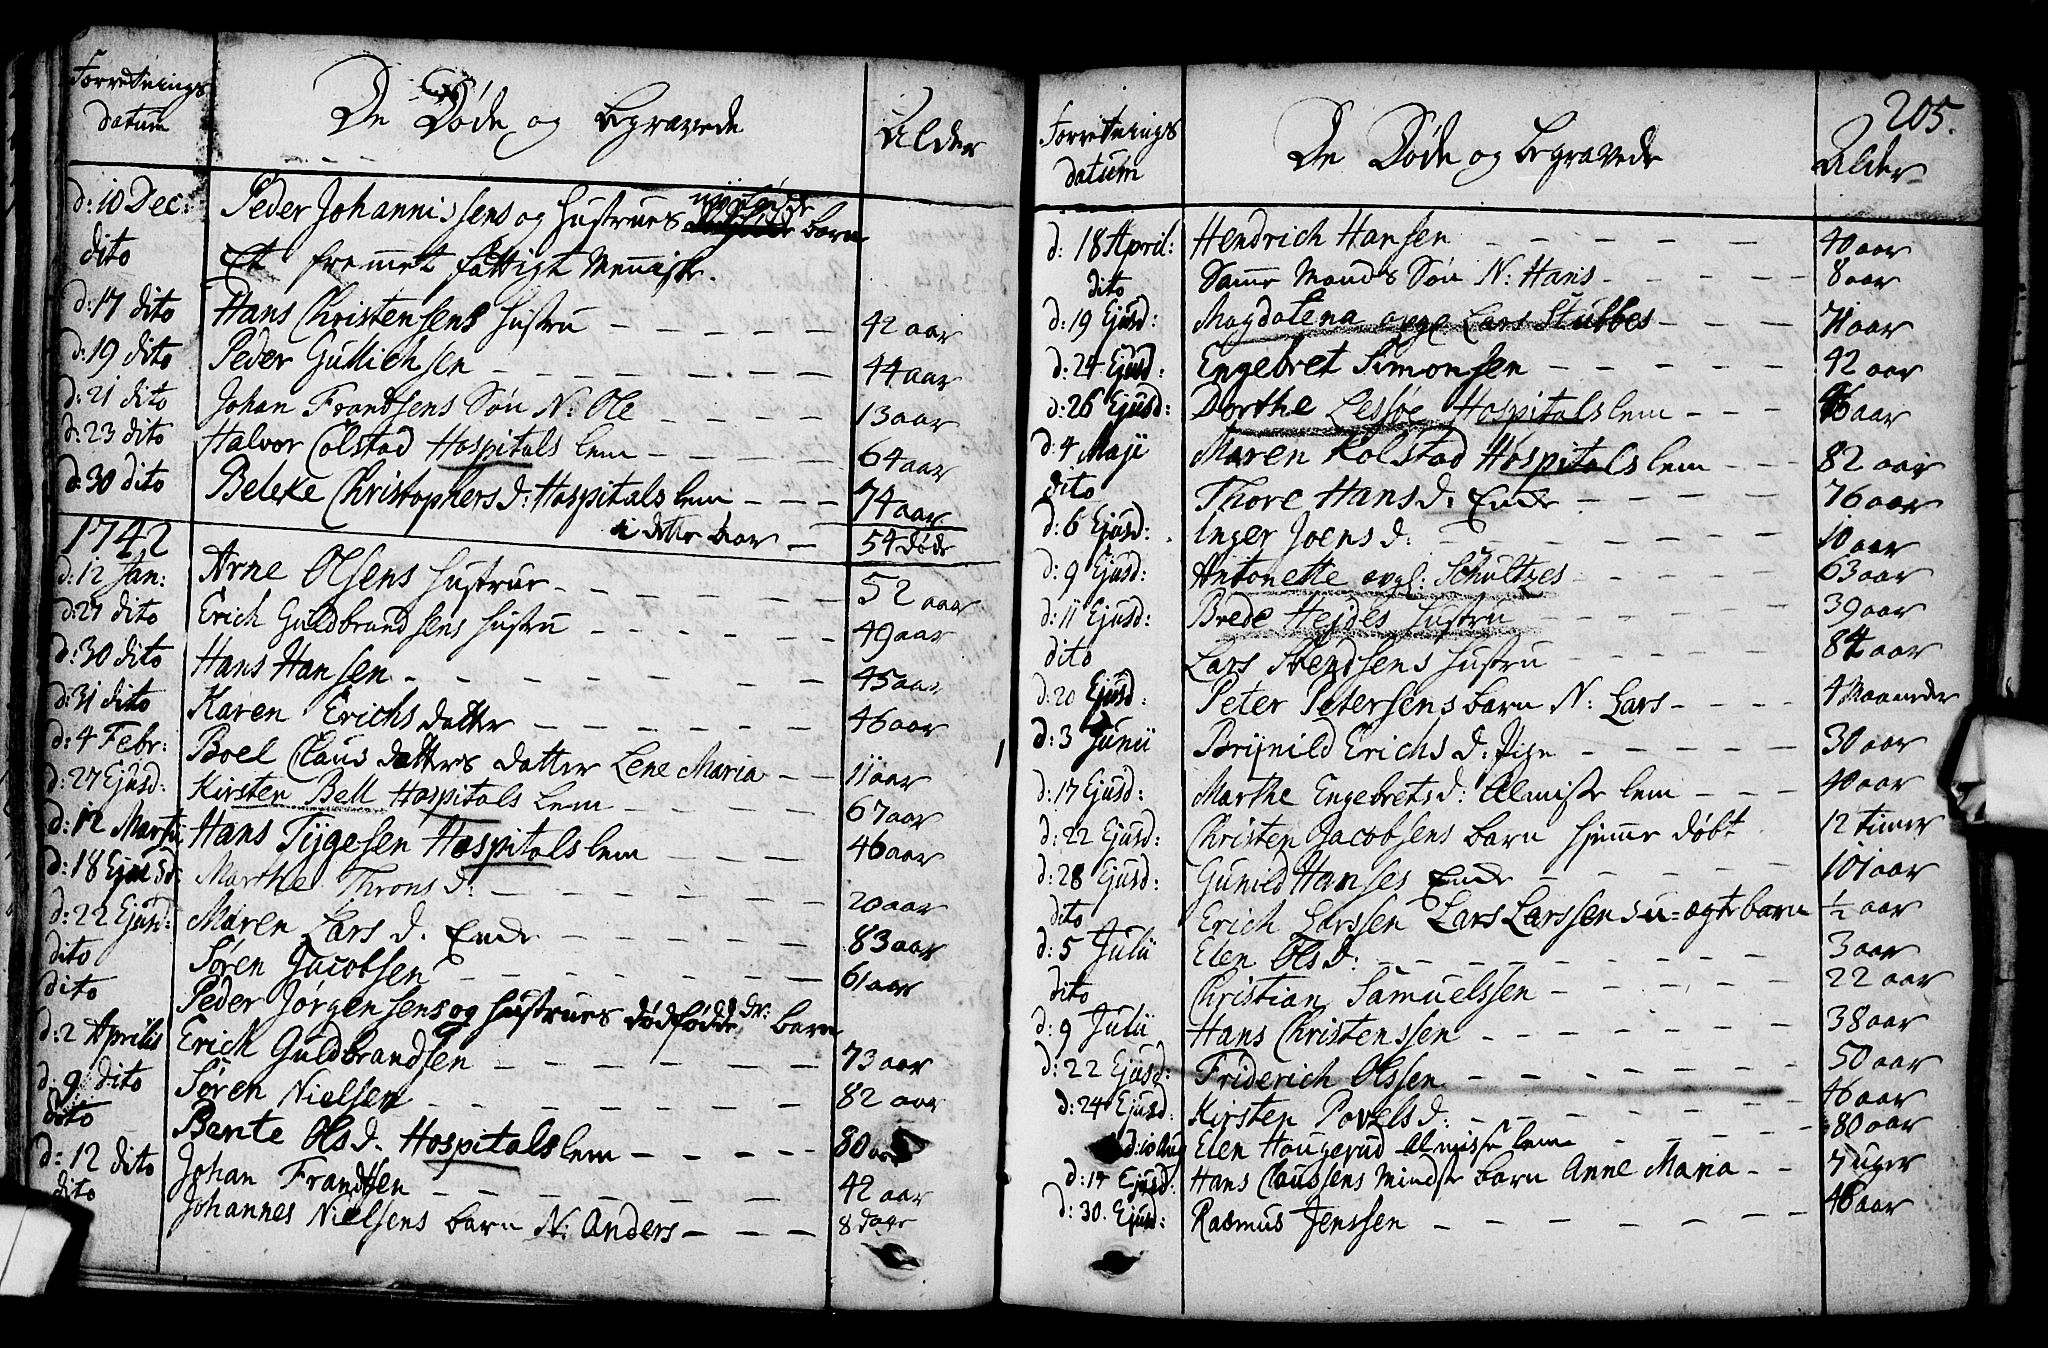 Forretnings datum De Døde og Begravede Alder
d: 10 Dec: Peder Johannissens og Hustrues nyfødde barn
dito Et fremmet fattigt Menniske.
d: 17 dito Hans Christensens Hustru — 42 aar
d: 19 dito Peder Gullichsen — 44 aar
d: 21 dito Johan Frandsens Søn N: Ole — 13 aar
d: 23 dito Halvor Colstad Hospitals lem — 64 aar
d: 30 dito Beleke Christophers d: Hospitals lem — 74 aar
i dette Aar — 54 døde
1742
d: 12 Jan: Arne Olsens Hustrue — 52 aar
d: 27 dito Erich Guldbrandsens Hustru — 49 aar
d: 30 dito Hans Hansen — 45 aar
d: 31 dito Karen Erichsdatter — 46 aar
d: 4 Febr: Boel Clausdatters datter Lene Maria — 11 aar
d: 27 Ejusd: Kirsten Bell Hospitals Lem — 67 aar
d: 12 Martii Hans Tygesen Hospitals lem — 46 aar
d: 18 Ejusd: Marthe Throns d: — 20 aar
d: 22 Ejusd: Maren Lars d. Enke — 83 aar
dito Søren Jacobsen — 61 aar
dito Peder Jörgensens og Hustrues dødfødde barn
d: 2 Aprilis Erich Guldbrandsen — 73 aar
d: 9 dito Søren Nielsen — 82 aar
dito Bente Ols d. Hospitals lem — 80 aar
d: 12 dito Johan Frandsen — 42 aar
dito Johannes Nielsens barn N: Anders — 8 dage
205.
Forretnings datum De Døde og begravede Alder
d: 18 April: Hendrich Hansen — 40 aar
dito Samme Mands Søn N: Hans — 8 aar
d: 19 Ejusd: Magdalena Lars Stubbes — 71 aar
d: 24 Ejusd: Engebret Simonsen — 42 aar
d: 26 Ejusd: Dorthe Lessøe Hospitals lem — aar
d: 4 Maji Maren Kolstad Hospitals lem — 82 aar
dito Thore Hans d. Enke — 76 aar
d: 6 Ejusd: Inger Joens d: — 10 aar
d: 9 Ejusd: Antonette Schultzes — 63 aar
d: 11 Ejusd: Brede Hejdes Hustru — 39 aar
dito Lars Svendsens Hustru — 84 aar
d: 20 Ejusd: Peter Petersens barn N: Lars — 4 Maaneder
d: 3 Junii Brynild Erichs d: Pige — 30 aar
d: 17 Ejusd: Marthe Engebrets d: Almisse lem — 40 aar
d: 22 Ejusd: Christen Jacobsens barn hjemme døbt 12 timer
d: 28 Ejusd: Gunild Hanses Enke — 101 aar
dito Erich Larssen Lars Larssens u-ægte barn ½ aar
d: 5 Julii Elen Ols d: — 3 aar
dito Christian Samuelssen — 22 aar
d: 9 Julii Hans Christenssen — 38 aar
d: 22 Ejusd: Friderich Olssen — 50 aar
d: 24 Ejusd: Kirsten Povels d: — 46 aar
d: 10 Aug Elen Hougerud almisse lem — 80 aar
d: 14 Ejusd: Hans Claussens mindste barn Anne Maria — 7 uger
d: 30. Ejusd: Rasmus Jenssen — 48 aar